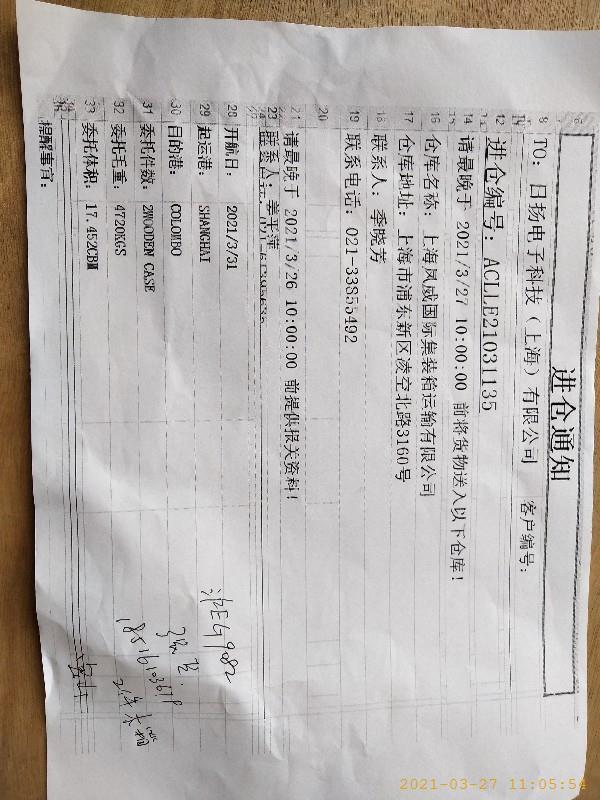 进仓通知
TO: 日扬电子科技（上海）有限公司 客户编号:
进仓编号: ACLLE21031135
请最晚于 2021/3/27 10:00:00 前将货物送入以下仓库!
仓库名称: 上海凤威国际集装箱运输有限公司
仓库地址: 上海市浦东新区凌空北路3160号
联系人: 季晓芳
联系电话: 021-33855492
请最晚于 2021/3/26 10:00:00 前提供报关资料!
联系人: 姜平萍
开航日: 2021/3/31
起运港: SHANGHAI
目的港: COLOMBO
委托件数: 2WOODEN CASE
委托毛重: 4720KGS
委托体积: 17.452CBM
提醒事宜:
2021-03-27 11:05:54